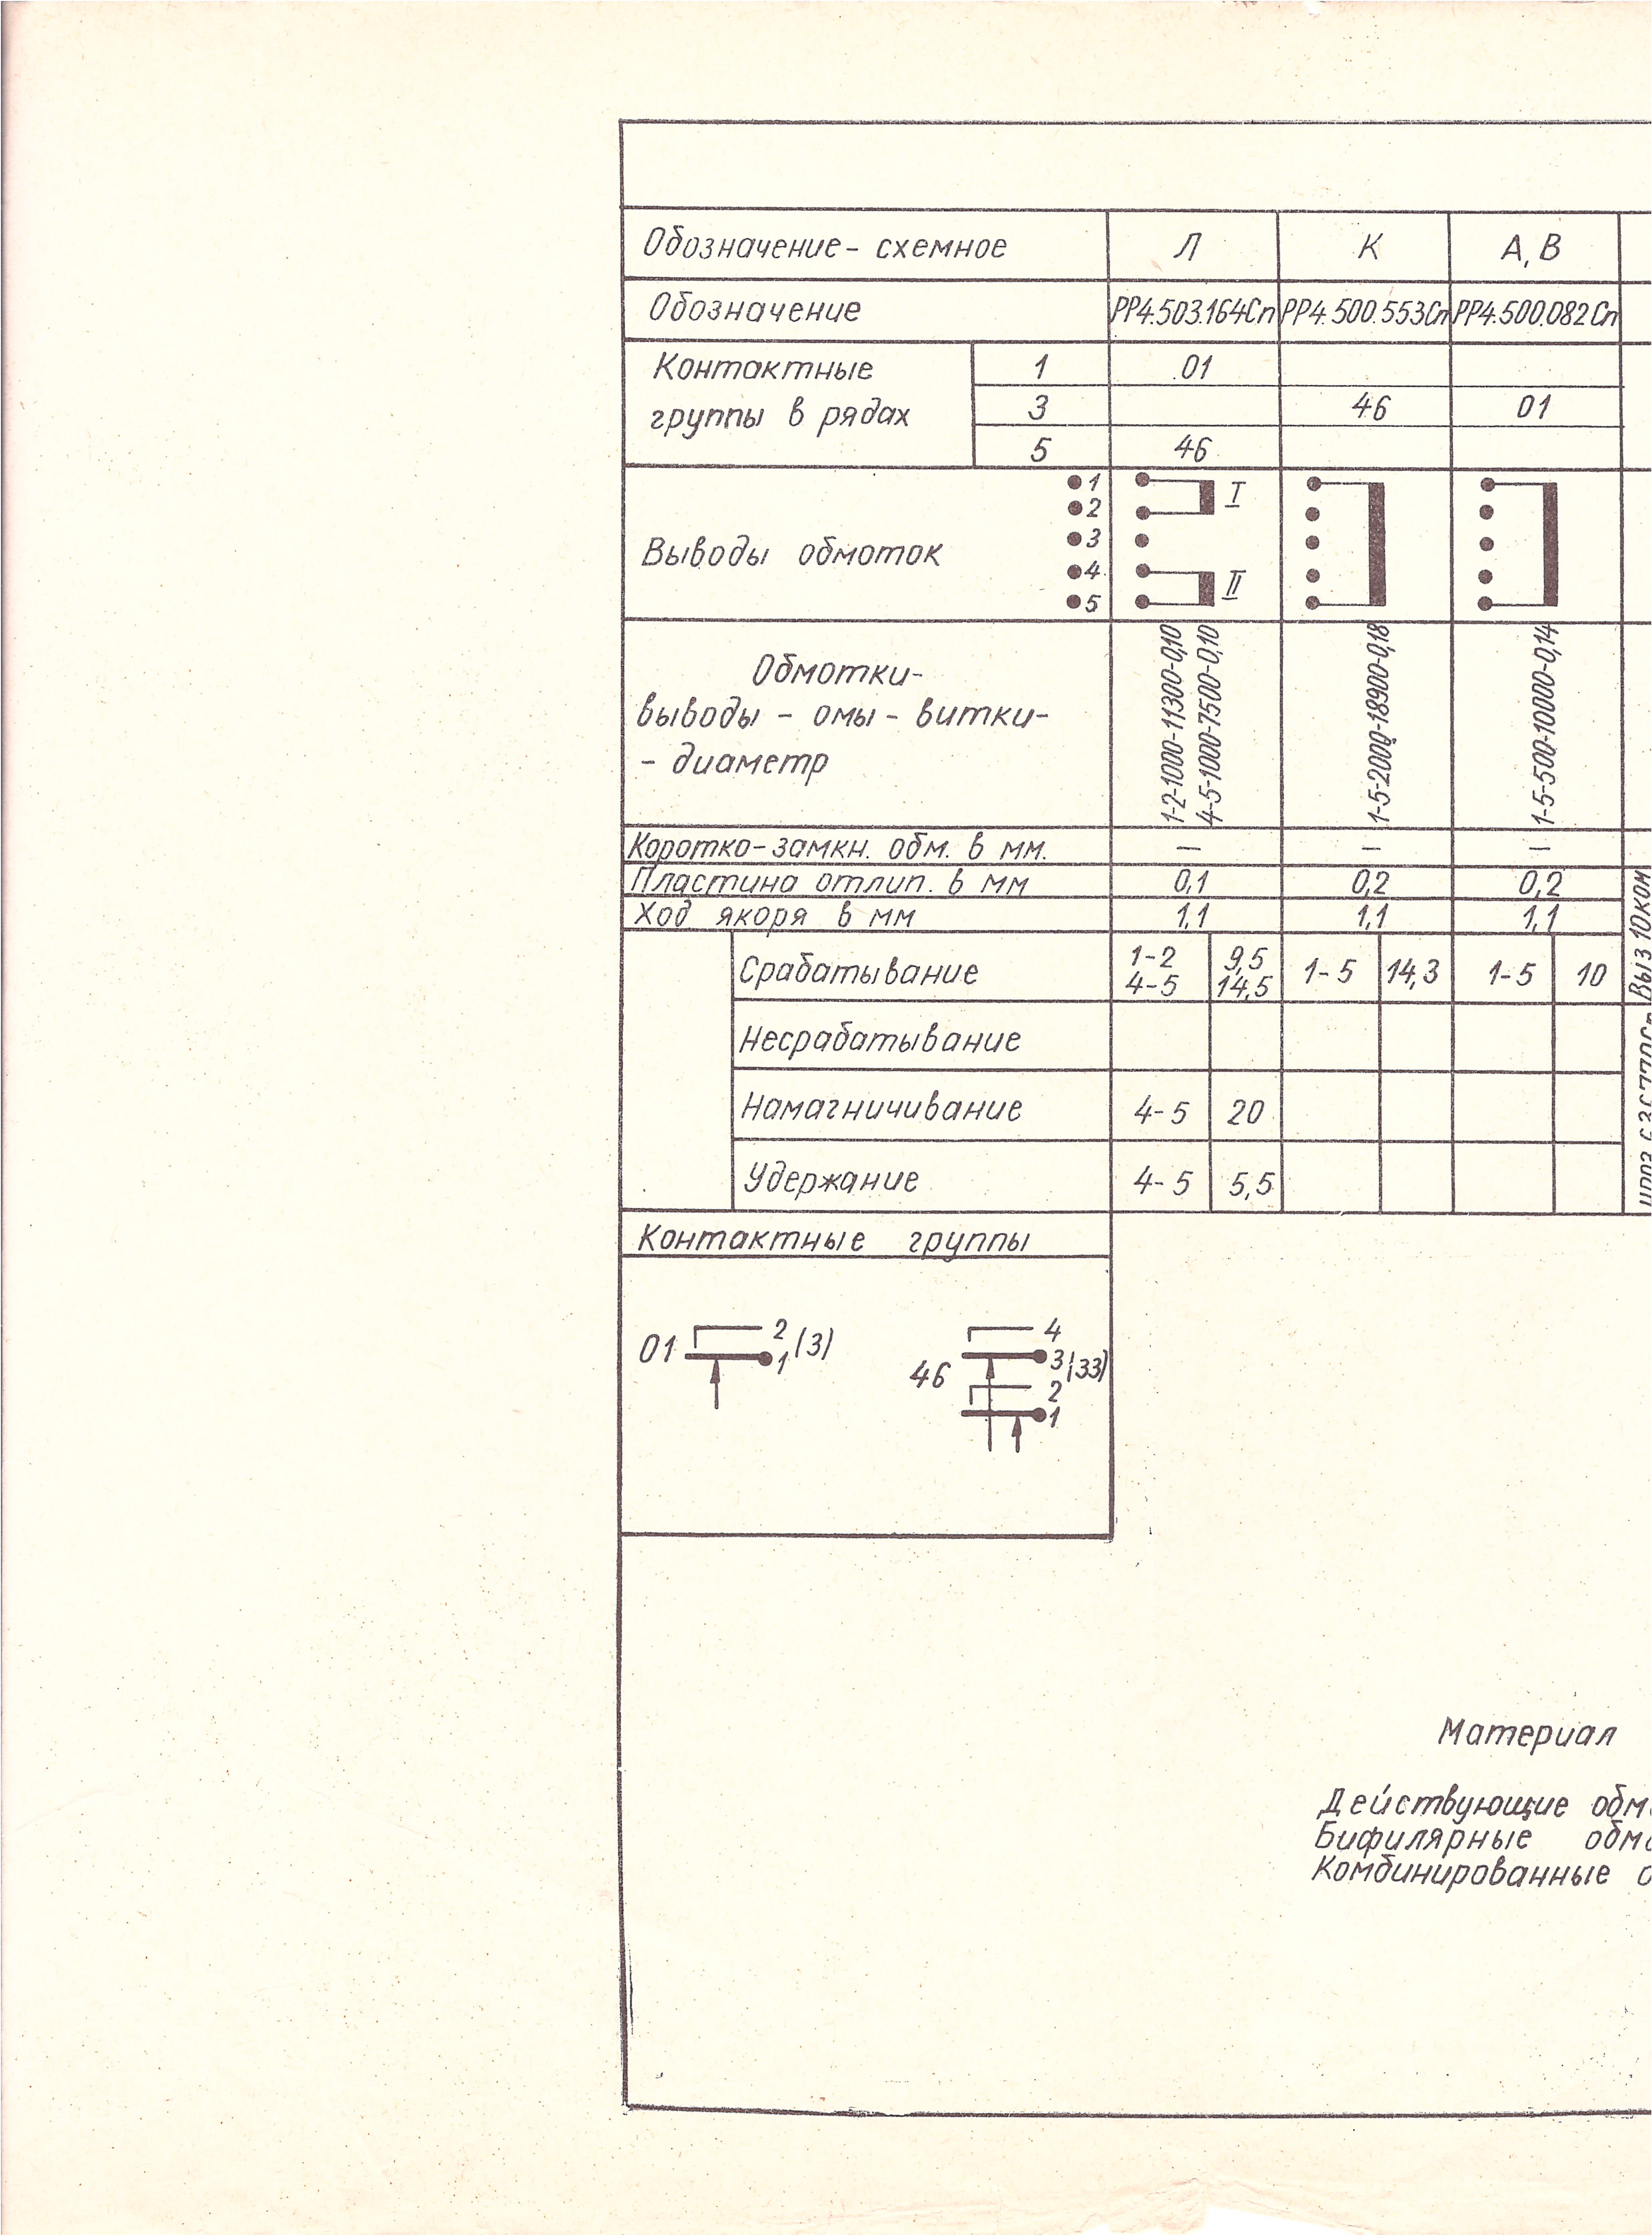 Обозначение - схемное Л К А, В
Обозначение РР4.503.164Сп РР4.500.553Сп РР4.500.082Сп
Контактные
группы в рядах
1 01
3 46 01
5 46
Выводы обмоток
1
2
3
4
5
I
II
Обмотки-
выводы - омы - витки-
- диаметр
1-2-1000-11300-0,10
4-5-1000-7500-0,10
1-5-2000-18900-0,18
1-5-500-10000-0,14
Коротко-замкн. обм. в мм. — — —
Пластина отлип. в мм 0,1 0,2 0,2
Ход якоря в мм 1,1 1,1 1,1
Срабатывание 1-2 9,5 1-5 14,3 1-5 10
4-5 14,5
Несрабатывание
Намагничивание 4-5 20
Удержание 4-5 5,5
Выз 10ком
Контактные группы
01 2 1 (3)
46 4 3 (33) 2 1
Материал
Действующие обм
Бифилярные обм
Комбинированные о